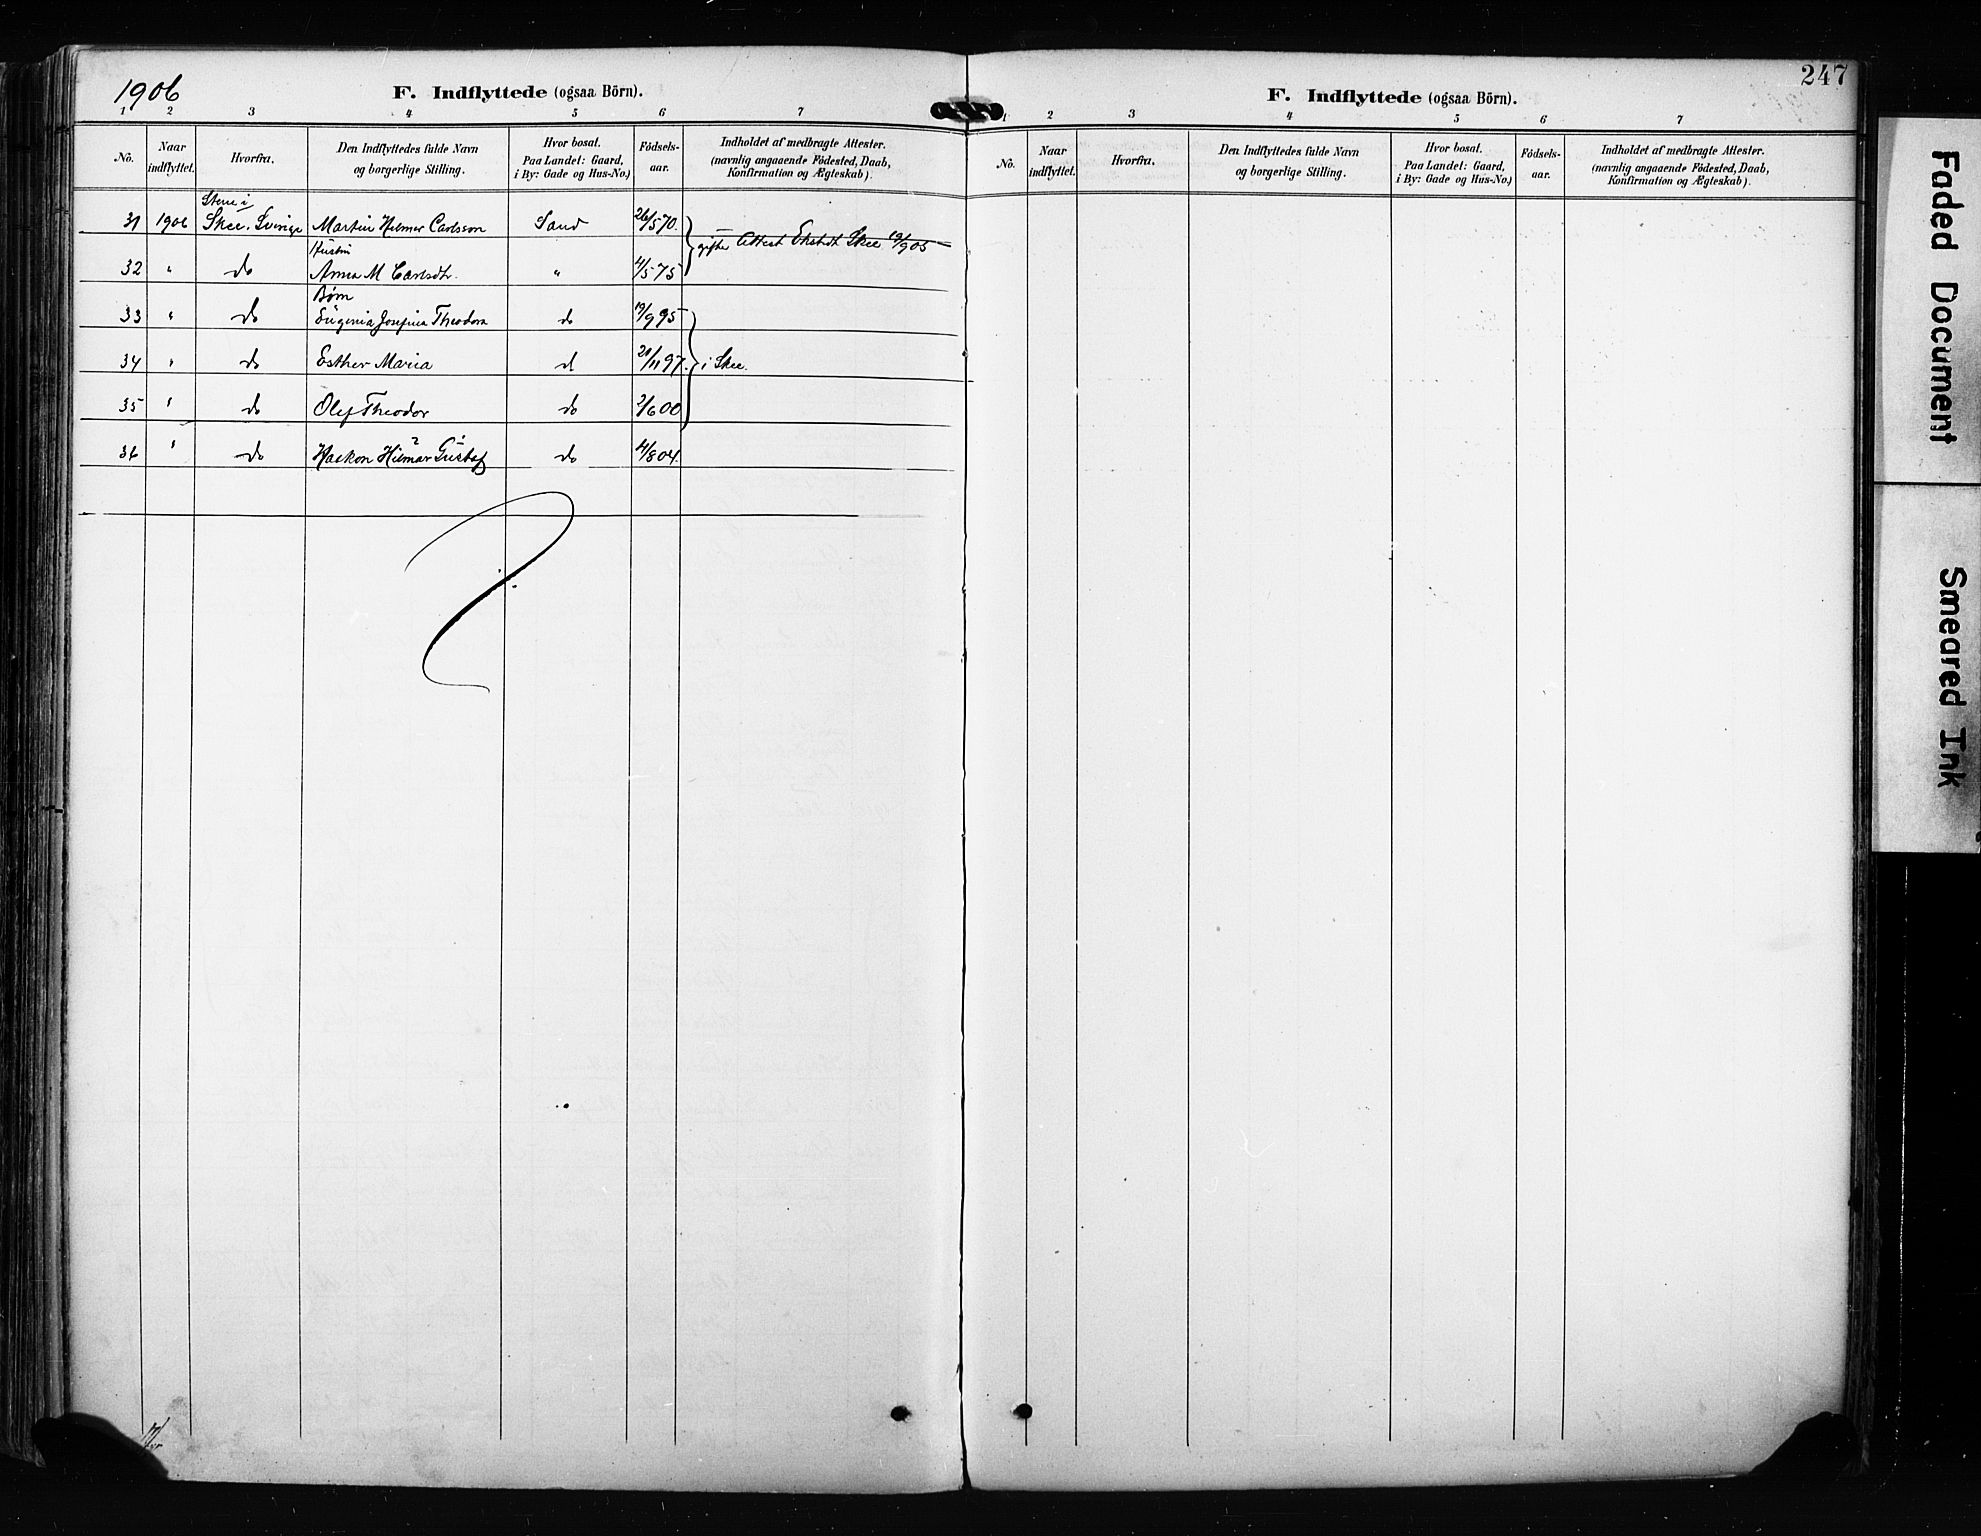 1906
F. Indflyttede (ogsaa Börn).
1 2 3 4 5 6 7
No.
Naar indflyttet.
Hvorfra.
Den Indflyttedes fulde Navn og borgerlige Stilling.
Hvor bosat. Paa Landet: Gaard, i By: Gade og Hus-No.)
Födsels-aar.
Indholdet af medbragte Attester. (navnlig angaaende Födested, Daab, Konfirmation og Ægteskab).
31 1906 Stene i Skee. Sverige Martin Hilmer Carlsson Sand 26/5 70. gifte Attest Skee 19/9 05
Hustru
32 " do Anna M Carlsdtr. " 4/5 75
Børn
33 " do Eugenia Josefina Theodora do 19/9 95
34 " do Esther Maria d 20/11 97. i Skee.
35 " do Olef Theodor do 2/6 00
36 " do Haakon Hilmar Gustaf do 4/8 04.
247
F. Indflyttede (ogsaa Börn).
1 2 3 4 5 6 7
No.
Naar indflyttet.
Hvorfra.
Den Indflyttedes fulde Navn og borgerlige Stilling.
Hvor bosat. Paa Landet: Gaard, i By: Gade og Hus-No.)
Födsels-aar.
Indholdet af medbragte Attester. (navnlig angaaende Födested, Daab, Konfirmation og Ægteskab).
Faded Document
Smeared Ink